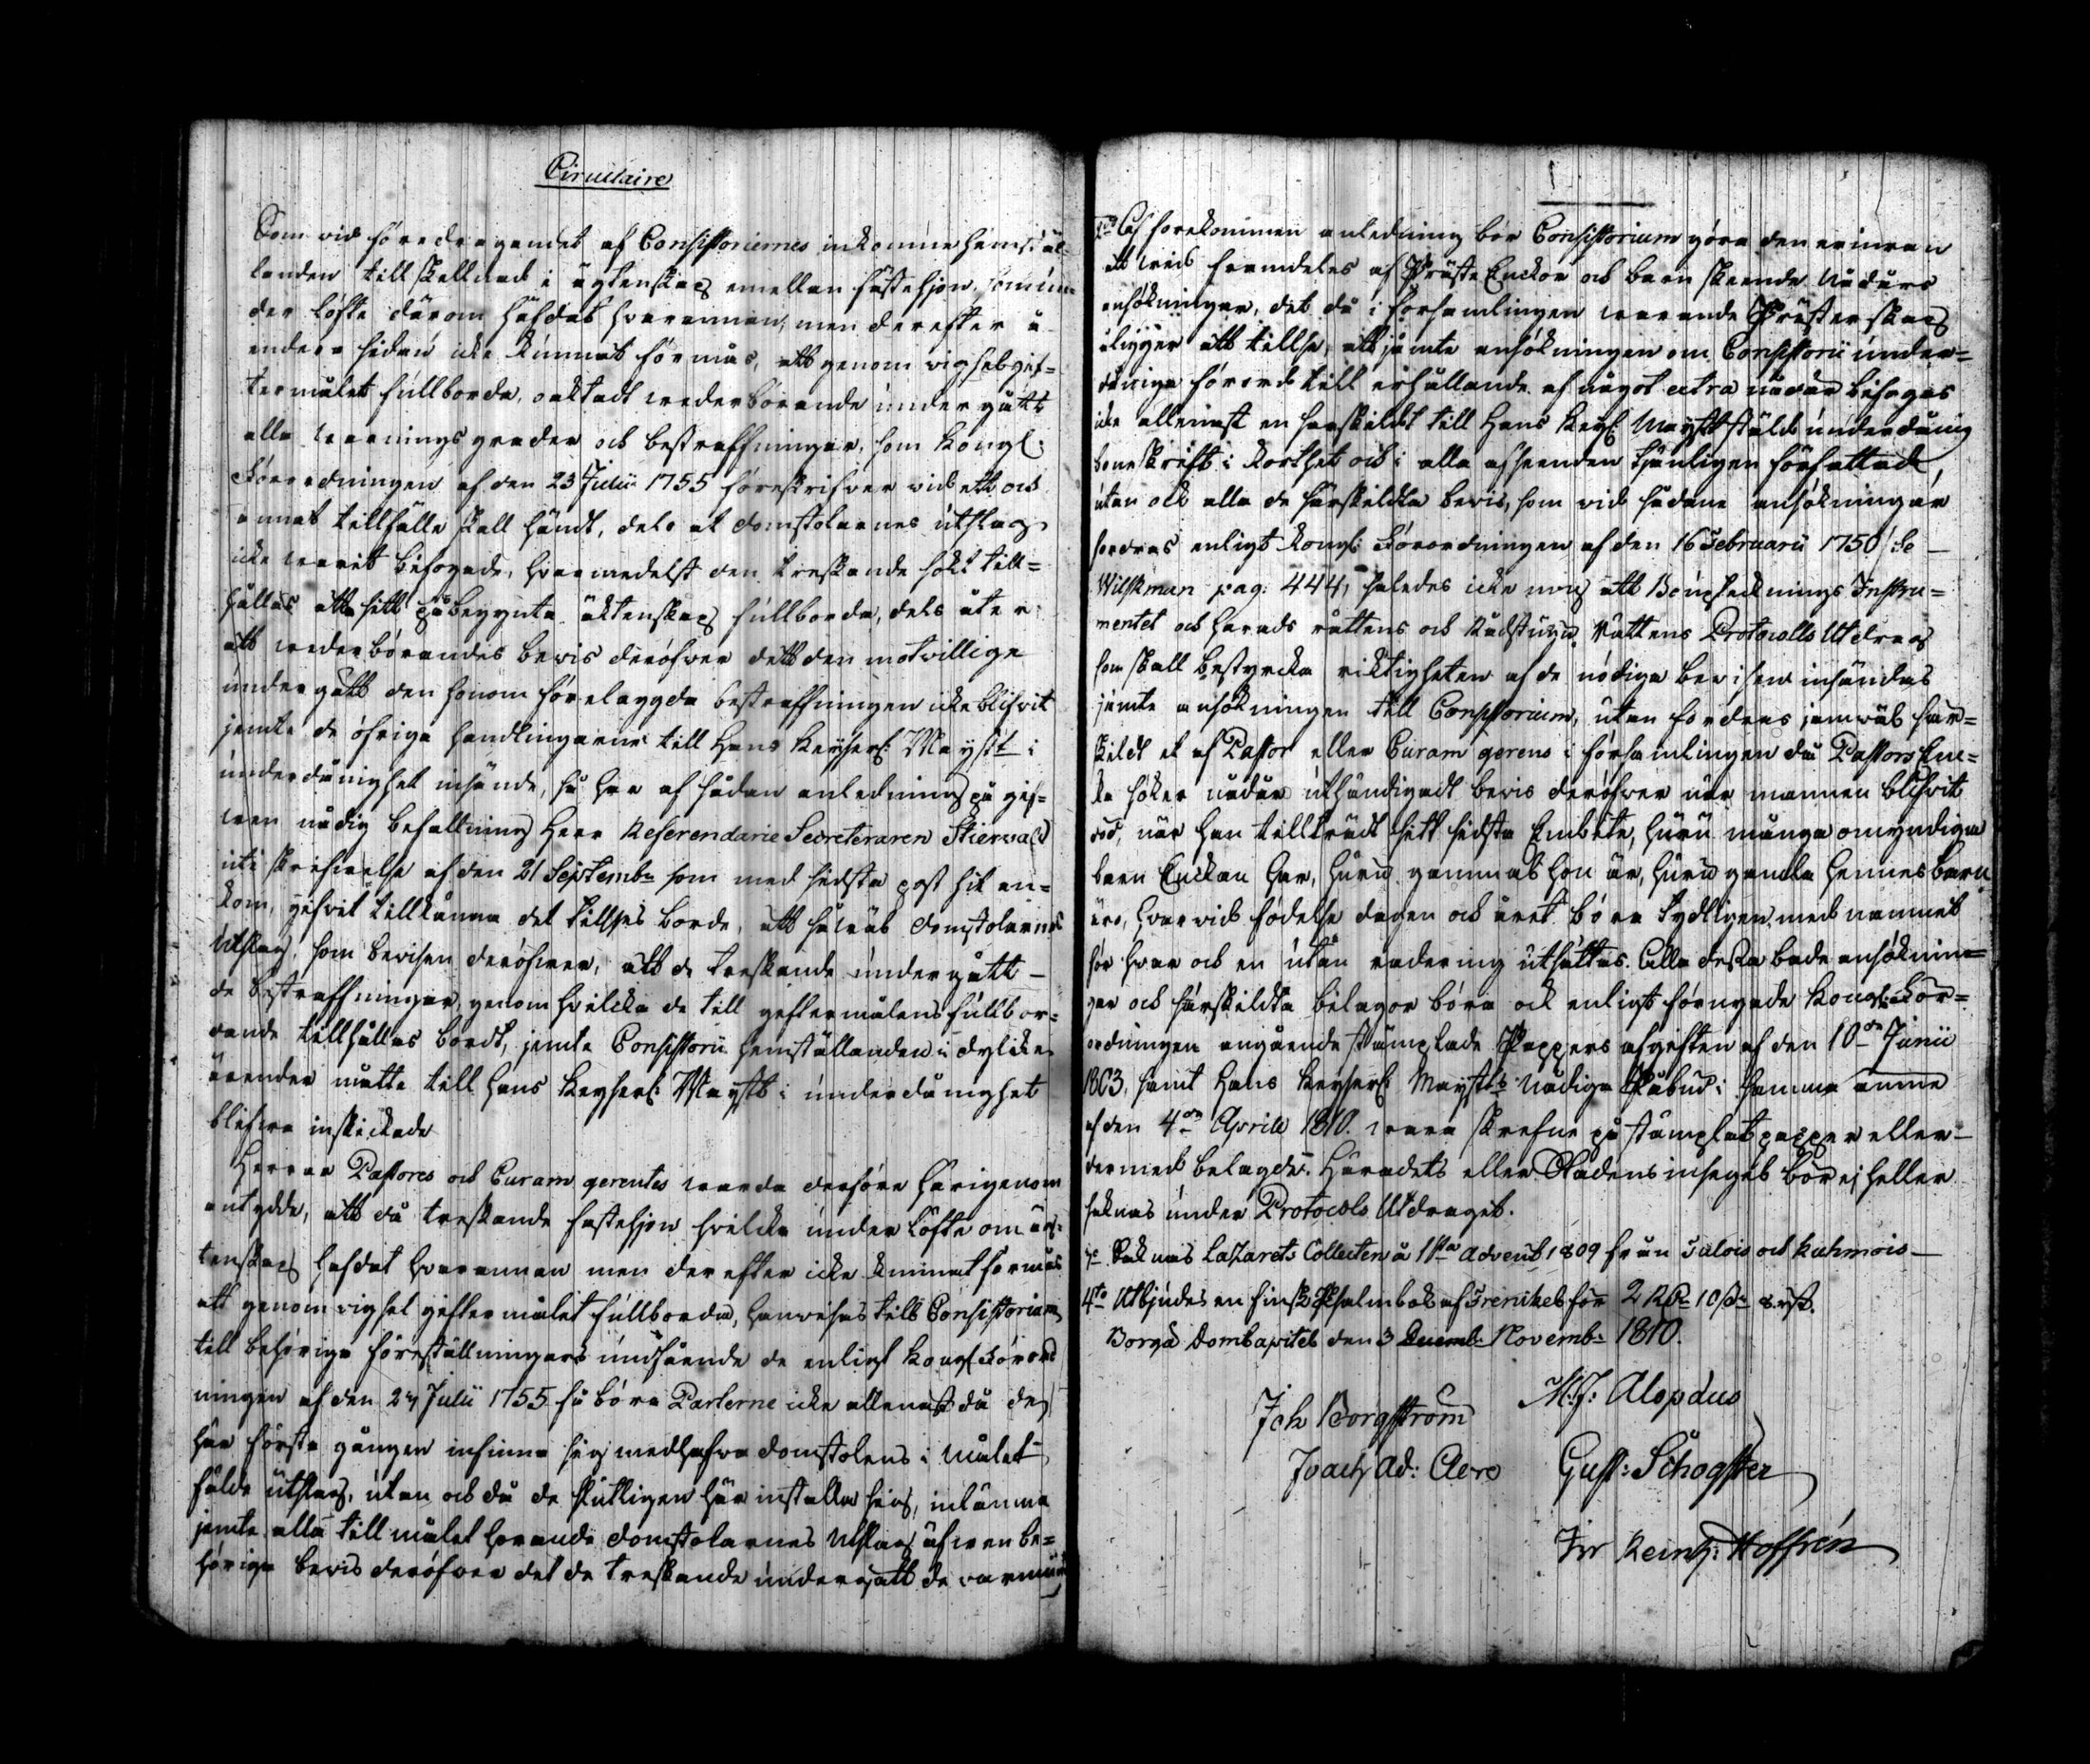 Circulaire
Som vid föredragandet af Consistoriernes inkomne hemstäl-
landen till skillnad i ägtenskap emellan fästehjon, som un-
der löfte därom häfdat hvarannan, men derefter å
endera sidan icke kunnat förmås, att genom vigsel gif-
termålet fullborda, oaktadt wederbörande undergått
alla warnings grader och bestraffningar, som Kongl:
Förordningen af den 23 Julii 1755 föreskrifver vid ett och
annat tillfälle skall händt, dels at domstolarnes utslag
icke warit bifogade, hvarmedelst den treskande sökt till-
hållas att sitt påbegynta äktenskap fullborda, dels åter
att wederbörandes bevis deröfver att den motvillige
undergått den honom förelaggda bestraffningen icke blifvit
jemte de öfriga handlingarne till Hans Keyserl: Mayst:t i
underdånighet insände, så har af sådan anledning på gif-
wen nådig befallning Herr Referendarie Secreteraren Stiervald
uti skrifvelse af den 21 Septembr som med sidsta post hit an-
kom, gifvit tillkänna det tillses borde, att såväl domstolarnes
Utslag, som bevisen deröfwer, att de treskande undergått
de bestraffningar, genom hvilcka de till giftermålens fullbor-
dande tillhållas bordt, jemte Consistorii hemställanden i dylika
ärender måtte till Hans Keyserl: Mayst:t i underdånighet
blifwa inskickade
Herrar Pastores och Curam gerentes warda derföre härigenom
antydde, att då treskande fästehjon hvilcka under löfte om äg-
tenskap häfdat hvarannan men derefter icke kunnat förmås
att genom vigsel giftermålet fullborda, hänvisas till Consistorium
till behöriga föreställningars undfående de enligt Kongl: Förord
ningen af den 23 Julii 1755 så böra Parterne icke allenast då de
här första gången infinna sig medhafva domstolens i målet
fälde utslag, utan och då de slutligen här inställa sig, inlämna
jemte alla till målet hörande domstolarnes Utslag äfwen be-
hörige bevis deröfver det de treskande undergått de
Af förekommen anledning bör Consistorium göra den erinran
att wid framdeles af Präste Enckor och barn skeende Nådårs
ansökningar, det då i församlingen warande Prästerskap
åligger att tillse, att jämte ansökningen om Consistorii under-
dåniga förord till erhållande af något extra nådår bifogas
icke allenast en särskildt till Hans Keys: Mayst:t ställd underdånig
böneskrift i korthet och i alla afseenden tjänligen författad,
utan ock alla de särskildta bevis, som vid sådane ansökningar
fordras enligt Kongl: Förordningen af den 16 Februarii 1750 se
Wilskman pag: 444, således icke nog att Bouptecknings Instru-
mentet och Härads rättens och Rådstugu Rättens Protocolls Utdrag
som skall bestyrcka riktigheten af de nödiga bevisen insändas
jemte ansökningen till Consistorium, utan fordras jemväl sär-
skildt et af Pastor eller Curam gerens i församlingen då Pastors Enc-
ka söker nådår utfändigadt bevis deröfver när mannen blifvit
död, när han tillträdt sitt sidsta Embete, huru många omyndiga
barn Enckan har, huru gammal hon är, huru gamla hennes barn
äro, hvarvid födelse dagen och året böra tydligen med namnet
för hvar och en utan radering utsättas. Alla dessa både ansöknin-
gar och särskildta bilagor böra ock enligt förnyade Kongl: För-
ordningen angående stämplade Pappers afgiften af den 10de Junii
1803, samt Hans Keyserl: Mayst:ts Nådiga Påbud i samma ämne
af den 4de Aprill 1810. wara skrefne på stämplat papper eller
dermed belagde. Häradets eller Stadens insegel bör ej heller
saknas under Protocols Utdraget.
Saknas Lazarets Collecten å 1sta Advent 1809 från Salois och Kuhmois
4to Utbjudes en finsk Psalmbok af Frenckel för 2 10
Borgå Domkapitel den 3 Novembr 1810.
M: J: Alopæus
Joh Borgström
Joach Ad: Gust:
Hoffrén